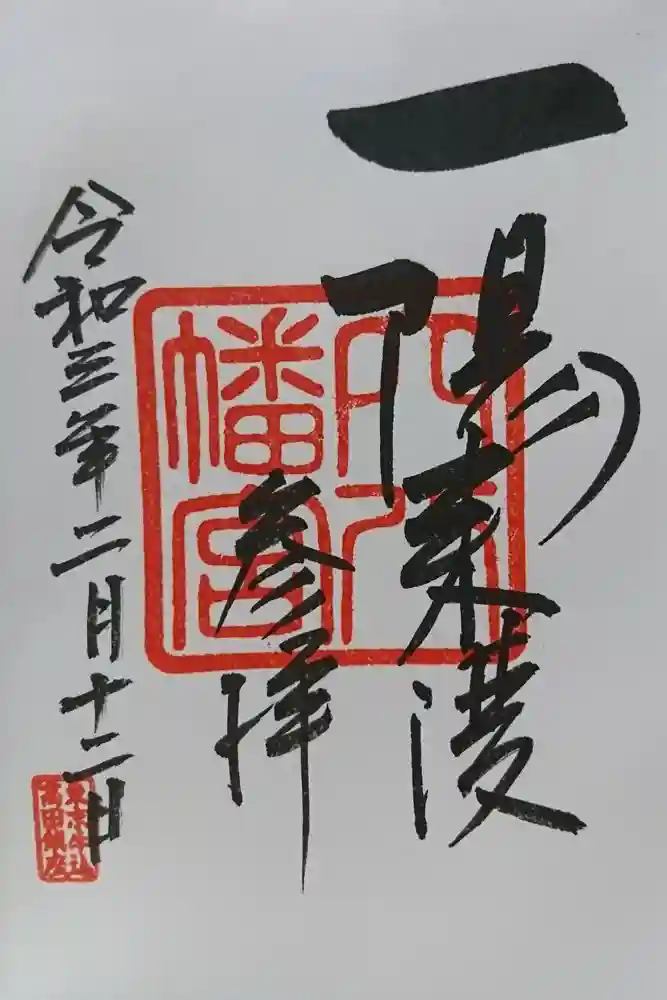 一陽来復
穴八
幡宮
参拝
令和三年二月十二日